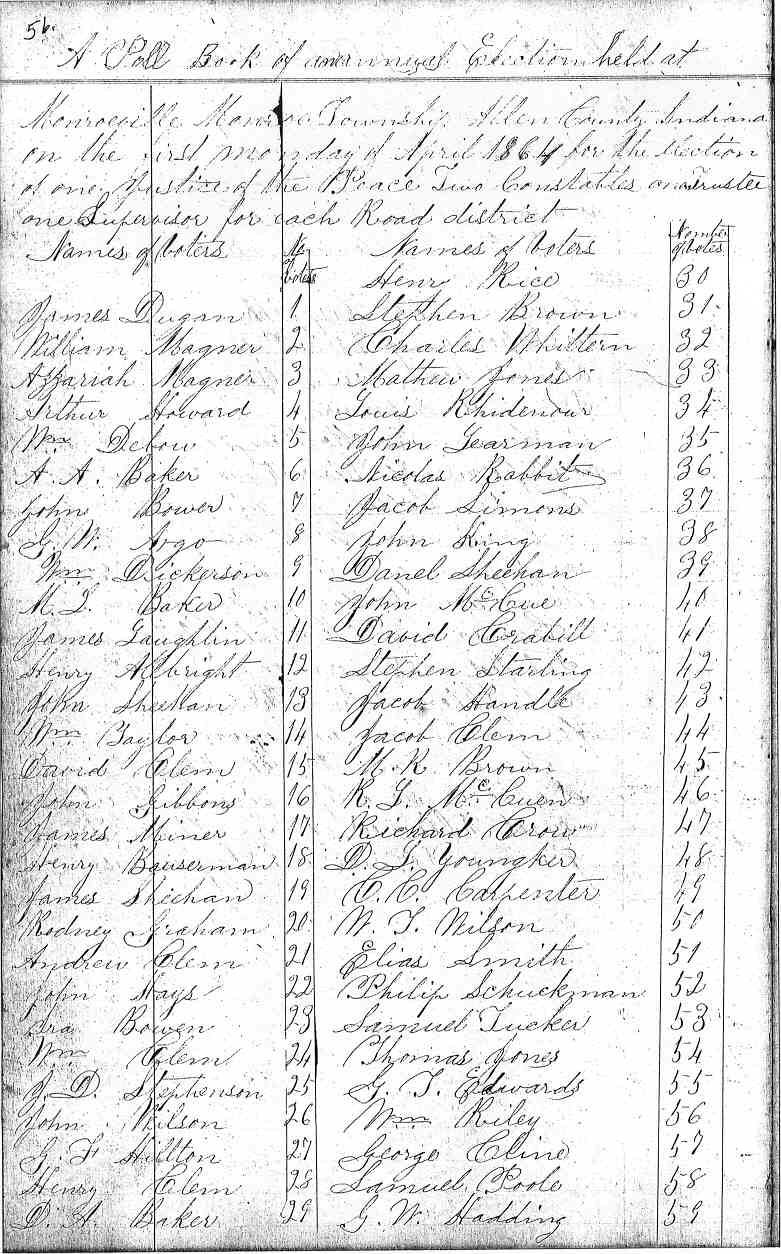 56.
A Poll Book of an Election held at
Monroeville Monroe Township Allen County Indiana
on the first monday of April 1864 for the election
of one Justice of the Peace Two Constables one Trustee
one Supervisor for each Road district
Names of Voters No Voters Names of Voters Number of Votes
Henry Rice 30
James Dugan 1 Stephen Brown 31
William Magner 2 Charles Whittern 32
Azzariah Magner 3 Mathew Jones 33
Arthur Howard 4 Louis Rhidenour 34
Wm Debow 5 John Yearman 35
A. A. Baker 6 Nicolas Rabbit 36
John Bower 7 Jacob Simons 37
G. W. Argo 8 John King 38
Wm Dickerson 9 Danel Sheehan 39
M. L. Baker 10 John McCue 40
James Laughlin 11 David Crabill 41
Henry Albright 12 Stephen Starling 42
John Sheehan 13 Jacob Handle 43
Wm Taylor 14 Jacob Clem 44
David Clem 15 M. R. Brown 45
John Gibbons 16 R. G. McCuen 46
James Miner 17 Richard Crow 47
Henry Bauserman 18 D. L. Youngker 48
James Sheehan 19 C. C. Carpenter 49
Rodney Graham 20 W. T. Wilson 50
Andrew Clem 21 Elias Smith 51
John Hays 22 Philip Schuckman 52
Ira Bowen 23 Samuel Tucker 53
Wm Clem 24 Thomas Jones 54
J. D. Stephenson 25 G. T. Edwards 55
John Wilson 26 Wm Riley 56
G. F. Hilton 27 George Cline 57
Henry Clem 28 Samuel Poole 58
D. H. Baker 29 G. W. Hadding 59